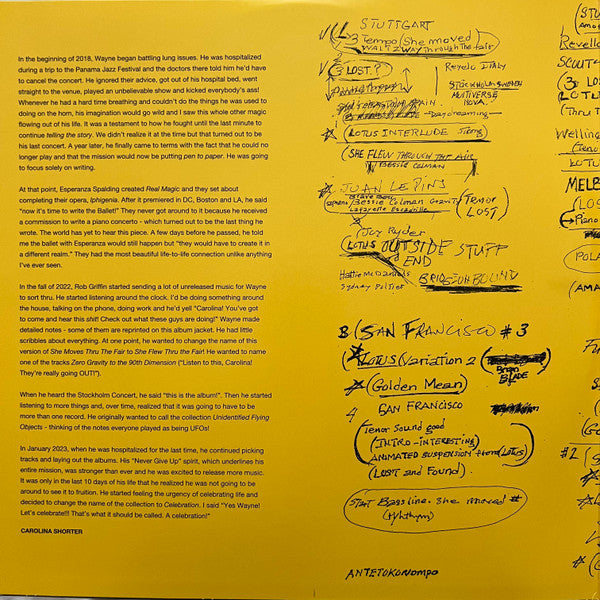 In the beginning of 2018, Wayne began battling lung issues. He was hospitalized
during a trip to the Panama Jazz Festival and the doctors there told him he'd have
to cancel the concert. He ignored their advice, got out of his hospital bed, went
straight to the venue, played an unbelievable show and kicked everybody's ass!
Whenever he had a hard time breathing and couldn't do the things he was used to
doing on the horn, his imagination would go wild and I saw this whole other magic
flowing out of his life. It was a testament to how he fought until the last minute to
continue telling the story. We didn't realize it at the time but that turned out to be
his last concert. A year later, he finally came to terms with the fact that he could no
longer play and that the mission would now be putting pen to paper. He was going
to focus solely on writing.
At that point, Esperanza Spalding created Real Magic and they set about
completing their opera, Iphigenia. After it premiered in DC, Boston and LA, he said
"now it's time to write the Ballet!" They never got around to it because he received
a commission to write a piano concerto - which turned out to be the last thing he
wrote. The world has yet to hear this piece. A few days before he passed, he told
me the ballet with Esperanza would still happen but "they would have to create it in
a different realm." They had the most beautiful life-to-life connection unlike anything
I've ever seen.
In the fall of 2022, Rob Griffin started sending a lot of unreleased music for Wayne
to sort thru. He started listening around the clock. I'd be doing something around
the house, talking on the phone, doing work and he'd yell "Carolina! You've got
to come and hear this shit! Check out what these guys are doing!" Wayne made
detailed notes - some of them are reprinted on this album jacket. He had little
scribbles about everything. At one point, he wanted to change the name of this
version of She Moves Thru The Fair to She Flew Thru the Fair! He wanted to name
one of the tracks Zero Gravity to the 90th Dimension ("Listen to this, Carolina!
They're really going OUT!").
When he heard the Stockholm Concert, he said "this is the album!". Then he started
listening to more things and, over time, realized that it was going to have to be
more than one record. He originally wanted to call the collection Unidentified Flying
Objects - thinking of the notes everyone played as being UFOs!
In January 2023, when he was hospitalized for the last time, he continued picking
tracks and laying out the albums. His "Never Give Up" spirit, which underlines his
entire mission, was stronger than ever and he was excited to release more music.
It was only in the last 10 days of his life that he realized he was not going to be
around to see it to fruition. He started feeling the urgency of celebrating life and
decided to change the name of the collection to Celebration. I said "Yes Wayne!
Let's celebrate!!! That's what it should be called. A celebration!"
CAROLINA SHORTER
STUTTGART
3 Tempo (She moved)
WALTZ WAY through the fair
(3 LOST.?)
STOCKHOLM SWEDEN
MULTIVERSE
NOVA.
Daydreaming
(LOTUS INTERLUDE Strong)
(SHE FLEW THROUGH THE AIR
BESSIE COLMAN
JUAN LE PINS
Bessie Colman
(TENOR
LOST)
(Joy Ryder
(LOTUS OUTSIDE STUFF
END
Hattie McDaniels
Sydney Poitier
BRIDGETON BOUND
B (SAN FRANCISCO #3
(LOTUS (Variation 2
Brian
BLADE
(Golden Mean)
4 SAN FRANCISCO
Tenor Sound good
(INTRO-INTERESTING)
ANIMATED SUSPENSION from (LOTUS)
(LOST and Found).
START Bass line. She moved #
(rhythym)
ANTETOKONOMPO
LOTUS
(Thru T
LOTUS
MELB
(LOS
Piano
(AMA
#2